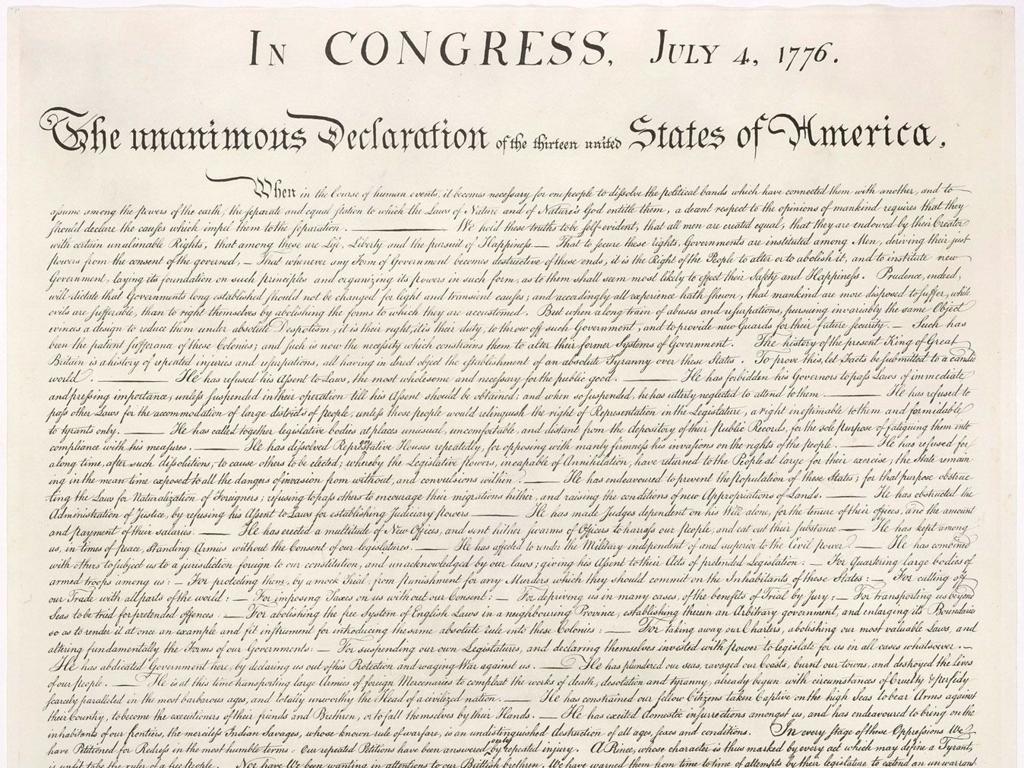 IN CONGRESS, JULY 4, 1776.
The unanimous Declaration of the thirteen united States of America,
When in the Course of human events, it becomes necessary for one people to dissolve the political bands which have connected them with another, and to
assume among the powers of the earth, the separate and equal station to which the Laws of Nature and of Nature's God entitle them, a decent respect to the opinions of mankind requires that they
should declare the causes which impel them to the separation. — We hold these truths to be self-evident, that all men are created equal, that they are endowed by their Creator
with certain unalienable Rights, that among these are Life, Liberty and the pursuit of Happiness. — That to secure these rights, Governments are instituted among Men, deriving their just
powers from the consent of the governed, — That whenever any Form of Government becomes destructive of these ends, it is the Right of the People to alter or to abolish it, and to institute new
Government, laying its foundation on such principles and organizing its powers in such form, as to them shall seem most likely to effect their Safety and Happiness. Prudence, indeed,
will dictate that Governments long established should not be changed for light and transient causes; and accordingly all experience hath shewn, that mankind are more disposed to suffer, while
evils are sufferable, than to right themselves by abolishing the forms to which they are accustomed. But when a long train of abuses and usurpations, pursuing invariably the same Object
evinces a design to reduce them under absolute Despotism, it is their right, it is their duty, to throw off such Government, and to provide new Guards for their future security. — Such has
been the patient sufferance of these Colonies; and such is now the necessity which constrains them to alter their former Systems of Government. The history of the present King of Great
Britain is a history of repeated injuries and usurpations, all having in direct object the establishment of an absolute Tyranny over these States. To prove this, let Facts be submitted to a candid
world. — He has refused his Assent to Laws, the most wholesome and necessary for the public good. — He has forbidden his Governors to pass Laws of immediate
and pressing importance, unless suspended in their operation till his Assent should be obtained; and when so suspended, he has utterly neglected to attend to them. — He has refused to
pass other Laws for the accommodation of large districts of people, unless those people would relinquish the right of Representation in the Legislature, a right inestimable to them and formidable
to tyrants only. — He has called together legislative bodies at places unusual, uncomfortable, and distant from the depository of their public Records, for the sole purpose of fatiguing them into
compliance with his measures. — He has dissolved Representative Houses repeatedly, for opposing with manly firmness his invasions on the rights of the people. — He has refused for
a long time, after such dissolutions, to cause others to be elected; whereby the Legislative powers, incapable of Annihilation, have returned to the People at large for their exercise; the State remain
ing in the mean time exposed to all the dangers of invasion from without, and convulsions within. — He has endeavoured to prevent the population of these States; for that purpose obstruc
ting the Laws for Naturalization of Foreigners; refusing to pass others to encourage their migrations hither, and raising the conditions of new Appropriations of Lands. — He has obstructed the
Administration of Justice, by refusing his Assent to Laws for establishing Judiciary powers. — He has made Judges dependent on his Will alone, for the tenure of their offices, and the amount
and payment of their salaries. — He has erected a multitude of New Offices, and sent hither swarms of Officers to harrass our people, and eat out their substance. — He has kept among
us, in times of peace, Standing Armies without the Consent of our legislatures. — He has affected to render the Military independent of and superior to the Civil power. — He has combined
with others to subject us to a jurisdiction foreign to our constitution, and unacknowledged by our laws; giving his Assent to their Acts of pretended Legislation: — For Quartering large bodies of
armed troops among us: — For protecting them, by a mock Trial, from punishment for any Murders which they should commit on the Inhabitants of these States: — For cutting off
our Trade with all parts of the world: — For imposing Taxes on us without our Consent: — For depriving us in many cases, of the benefits of Trial by Jury: — For transporting us beyond
Seas to be tried for pretended offences — For abolishing the free System of English Laws in a neighbouring Province, establishing therein an Arbitrary government, and enlarging its Boundaries
so as to render it at once an example and fit instrument for introducing the same absolute rule into these Colonies: — For taking away our Charters, abolishing our most valuable Laws, and
altering fundamentally the Forms of our Governments: — For suspending our own Legislatures, and declaring themselves invested with power to legislate for us in all cases whatsoever. —
He has abdicated Government here, by declaring us out of his Protection and waging War against us. — He has plundered our seas, ravaged our Coasts, burnt our towns, and destroyed the lives
of our people. — He is at this time transporting large Armies of foreign Mercenaries to compleat the works of death, desolation and tyranny, already begun with circumstances of Cruelty & perfidy
scarcely paralleled in the most barbarous ages, and totally unworthy the Head of a civilized nation. — He has constrained our fellow Citizens taken Captive on the high Seas to bear Arms against
their Country, to become the executioners of their friends and Brethren, or to fall themselves by their Hands. — He has excited domestic insurrections amongst us, and has endeavoured to bring on the
inhabitants of our frontiers, the merciless Indian Savages, whose known rule of warfare, is an undistinguished destruction of all ages, sexes and conditions. In every stage of these Oppressions We
have Petitioned for Redress in the most humble terms: Our repeated Petitions have been answered only by repeated injury. A Prince, whose character is thus marked by every act which may define a Tyrant,
is unfit to be the ruler of a free people. Nor have We been wanting in attentions to our Brittish brethren. We have warned them from time to time of attempts by their legislature to extend an unwarrant